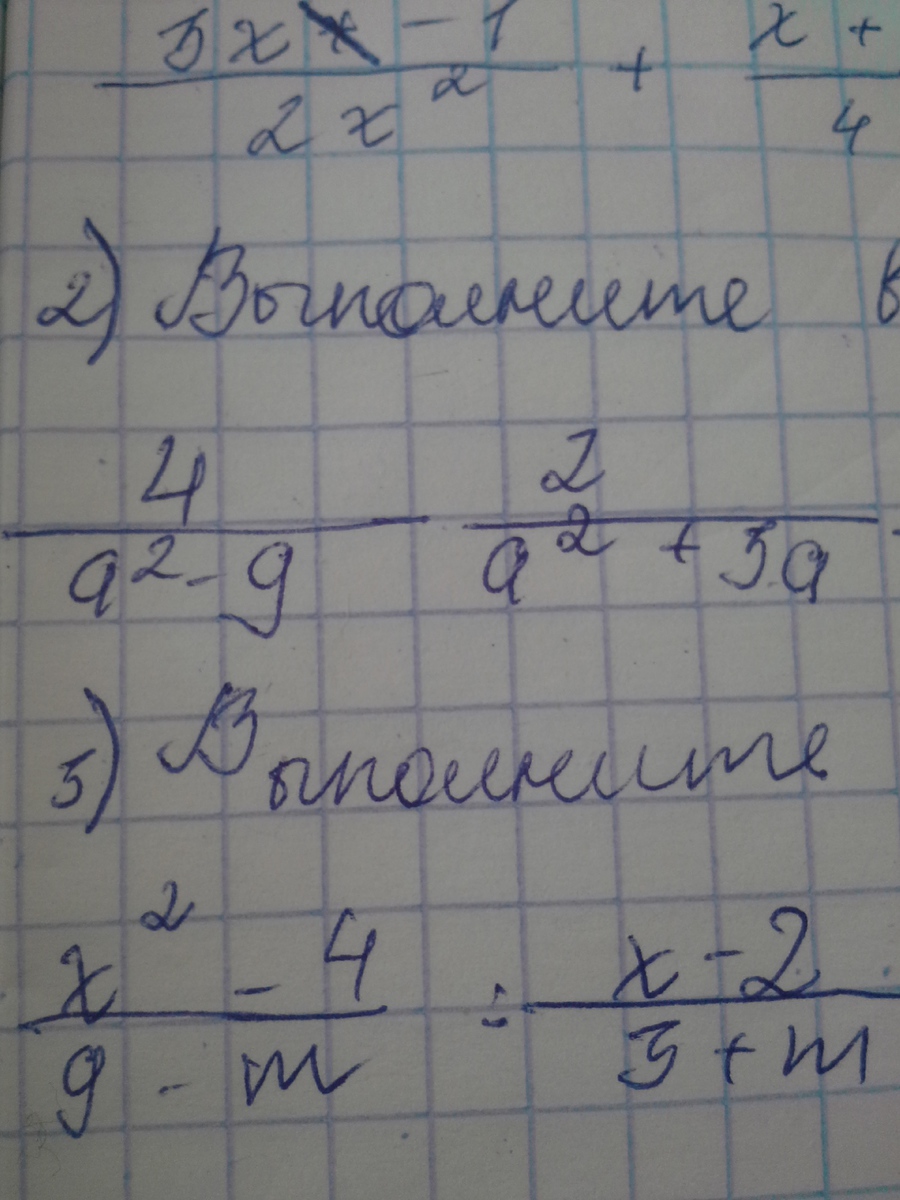 3x - 1 / 2x² + x + / 4
2) Выполните в
4 / a² - 9 2 / a² + 3a
3) Выполните
x² - 4 / 9 - m : x - 2 / 3 + m